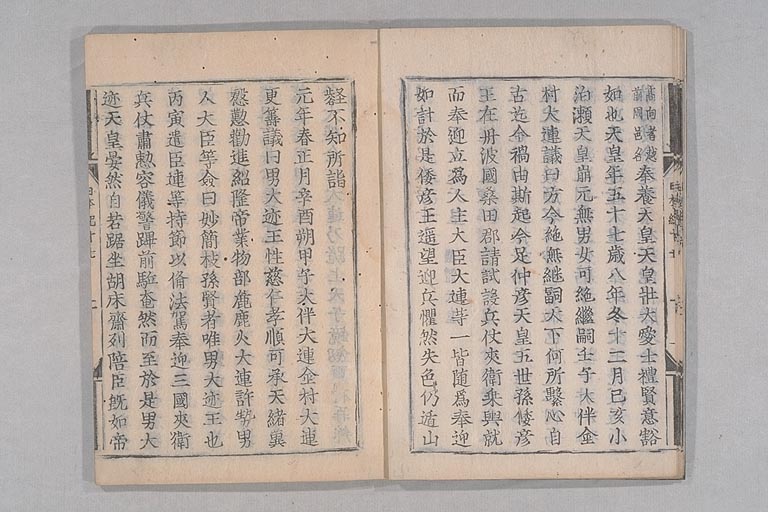 高向者越前國邑名奉養天皇天皇壯大愛士禮賢意豁
如也天皇年五十七歲八年冬十二月己亥小
泊瀬天皇崩元無男女可絶繼嗣壬子大伴金
村大連議曰方今絶無継嗣天下何所繫心自
古迄今禍由斯起今足仲彦天皇五世孫倭彦
王在丹波國桑田郡請試設兵仗夾衛乗輿就
而奉迎立為人主大臣大連等一皆隨焉奉迎
如計於是倭彦王遥望迎兵懼然失色仍遁山
壑不知所詣
元年春正月辛酉朔甲子大伴大連金村大連
更籌議曰男大迹王性慈仁孝順可承天緒冀
慇懃勸進紹隆帝業物部麁鹿火大連許勢男
人大臣等僉曰妙簡枝孫賢者唯男大迹王也
丙寅遣臣連等持節以備法駕奉迎三國夾衛
兵仗肅懃容儀警蹕前駈奄然而至於是男大
迹天皇晏然自若踞坐胡床齋列陪臣既如帝
日本紀十七